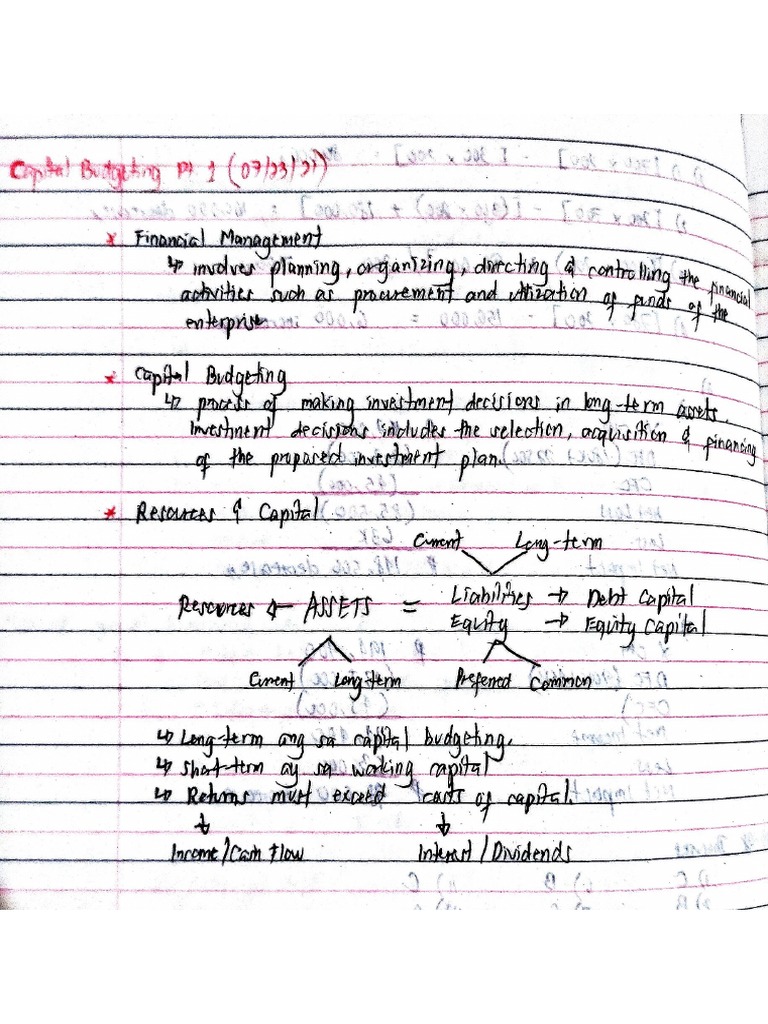 Capital Budgeting Pt 1 (07/23/21)
* Financial Management
↳ involves planning, organizing, directing & controlling the financial
activities such as procurement and utilization of funds of the
enterprise
* Capital Budgeting
↳ process of making investment decisions in long-term assets.
Investment decisions includes the selection, acquisition & financing
of the proposed investment plan.
* Resources & Capital
Current Long-term
Resources ← ASSETS = Liabilities → Debt Capital
Equity → Equity Capital
Current Long-term Preferred Common
↳ Long-term ang sa capital budgeting.
↳ short-term ay sa working capital
↳ Returns must exceed costs of capital.
↓ ↓
Income/Cash Flow Interest/Dividends